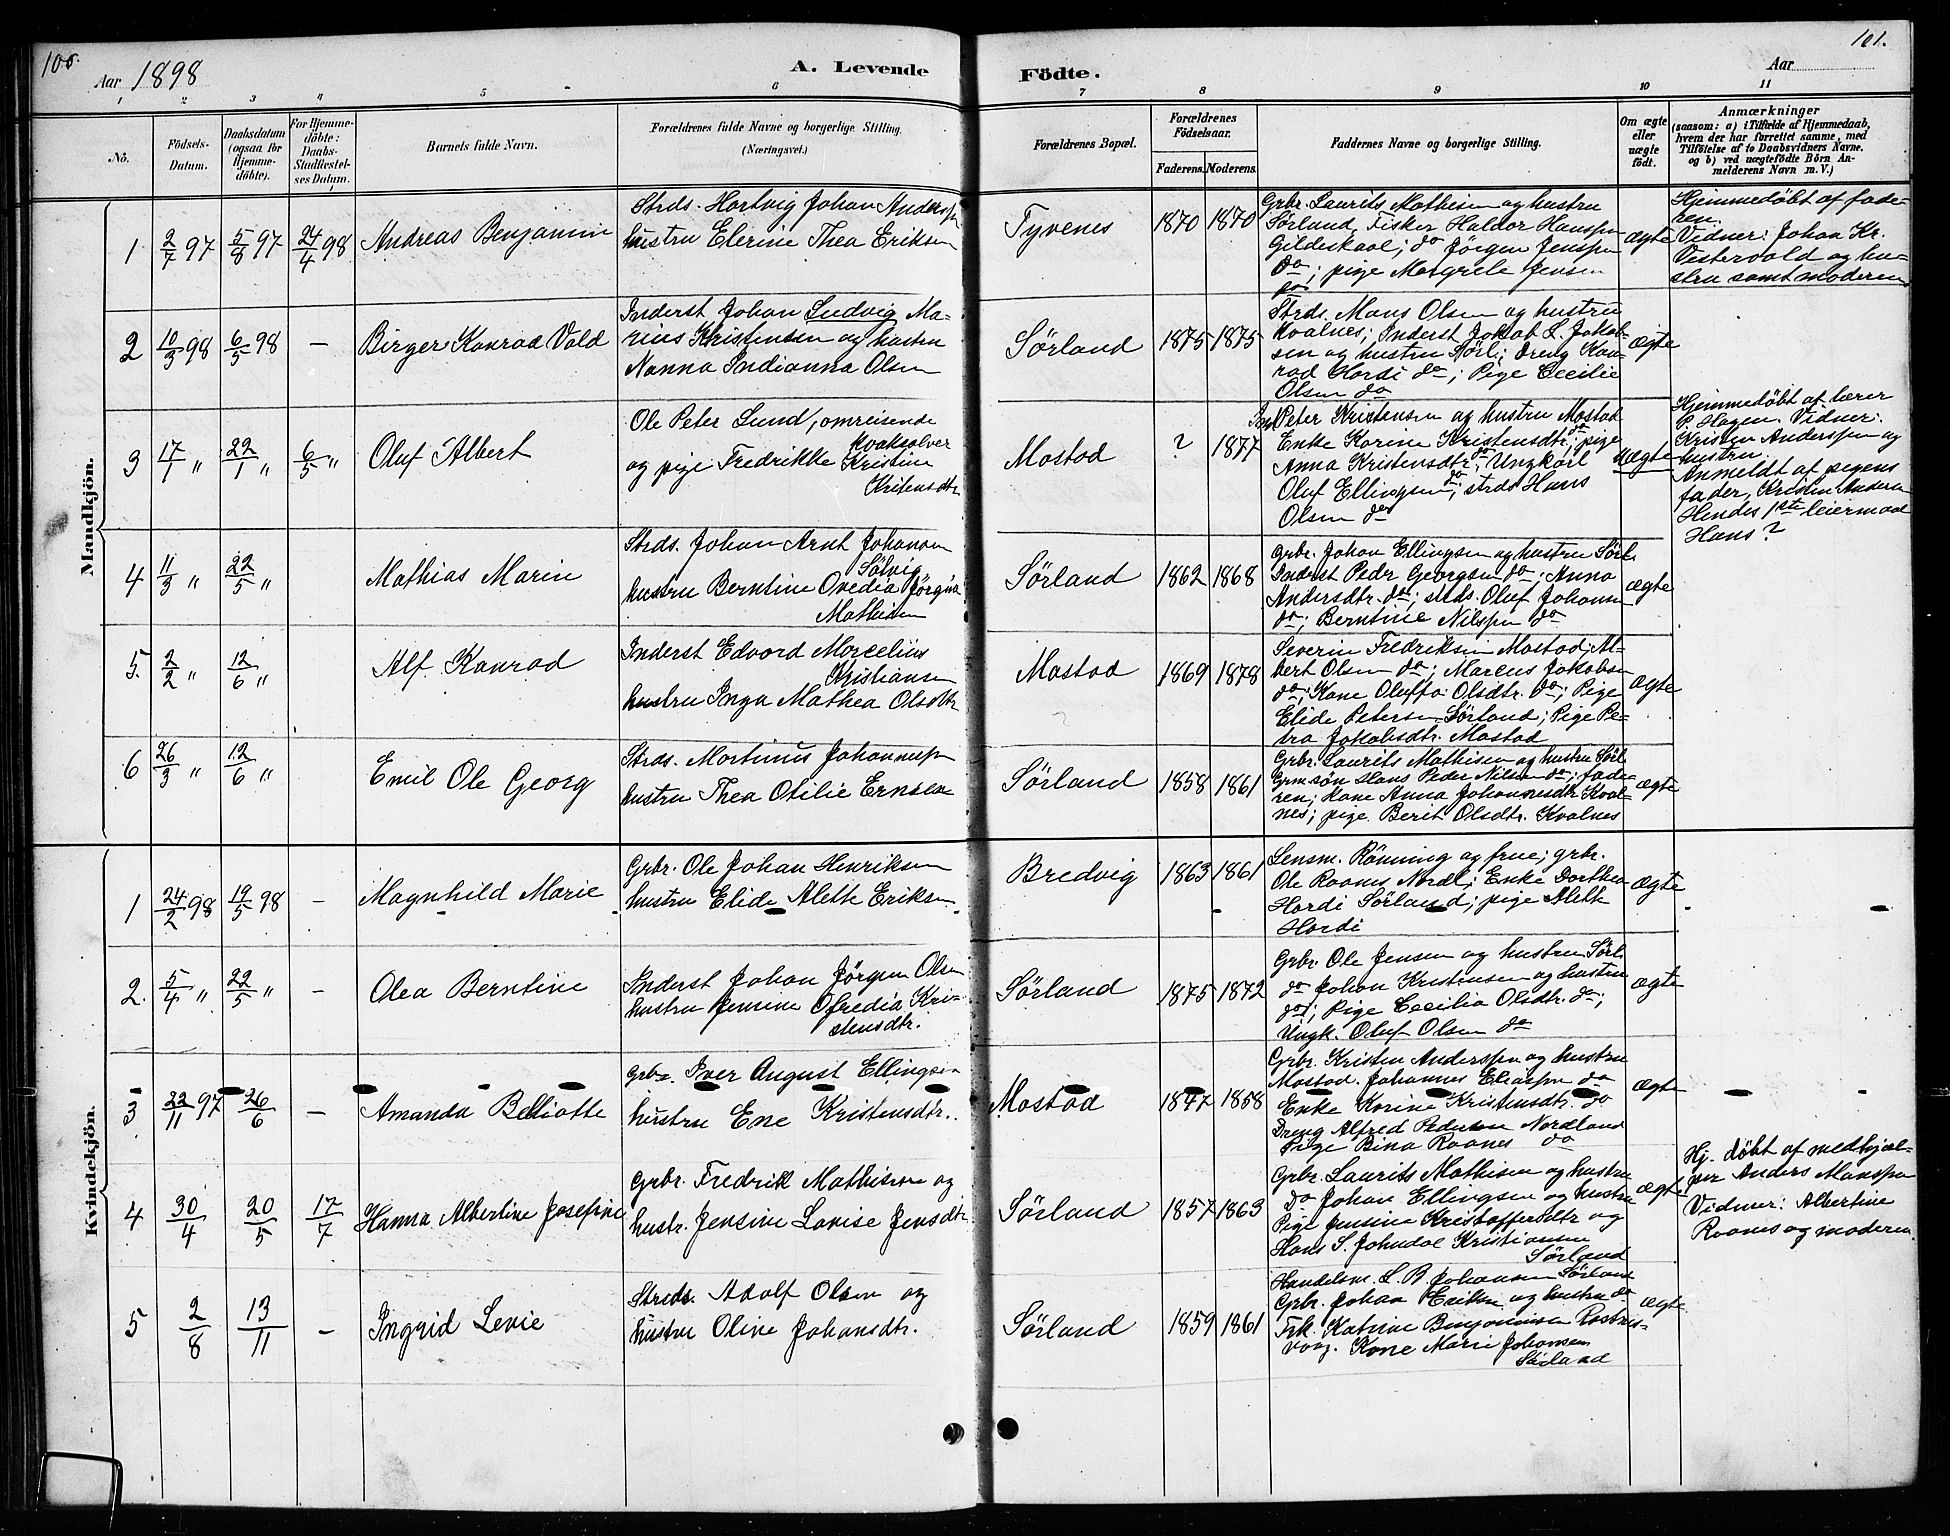 100.
Aar 1898
A. Levende
Födte.
101.
Aar
1 2 3 4 5 6 7 8 9 10 11
No.
Födsels-
Datum.
Daabsdatum
(ogsaa for
Hjemme-
döbte).
For Hjemme-
döbte:
Daabs-
Stadfæstel-
ses Datum.
Barnets fulde Navn.
Forældrenes fulde Navne og borgerlige Stilling.
(Næringsvei.)
Forældrenes Bopæl.
Forældrenes
Födselsaar.
Faderens. Moderens.
Faddernes Navne og borgerlige Stilling.
Om ægte
eller
uægte
födt.
Anmærkninger
(saasom: a) i Tilfælde af Hjemmedaab,
hvem der har forrettet samme, med
Tilföielse af to Daabsvidners Navne,
og b) ved uægtefödte Börn An-
melderens Navn m. V.)
Mandkjön.
1 2/7 97 5/8 97 24/4 98 Andreas Benjamin
Strds. Hartvig Johan Anderssn
hustru Elerine Thea Eriksen
Tyvenes 1870 1870
Grbr. Laurits Mathisen og hustru
Sørland, Fisker Haldor Hanssen
Gildeskaal; do Jörgen Jenssen
do; pige Margrete Jensen
do
ægte
Hjemmedöbt af fade-
ren.
Vidner: Johan Kr.
Vestervold og hu-
stru samt moderen
2 10/3 98 6/5 98 — Birger Konrad Vold
Inderst Johan Ludvig Ma-
rius Kristensen og hustru
Nanna Indianna Olsen
Sørland 1875 1875
Strds. Mons Olsen og hustru
Kvalnes; Inderst Jakob L. Jakob-
sen og hustru Sörl; Dreng Kon-
rad Hardi do; Pige Cecilie
Olsen do
ægte
3 17/1 " 22/1 " 6/5 " Oluf Albert
Ole Peter Lund, omreisende
Kvaksalver
og pige Fredrikke Kristine
Kritensdtr
Mostad ? 1877
Peter Kristensen og hustru Mostad
Enke Karine Kristensdtr do; pige
Anna Kristensdtr do; Ungkarl
Oluf Ellingsen do; strds Hans
Olsen do
uægte
Hjemmedöbt af lærer
P. Hagen. Vidner:
Kristen Anderssen og
hustru.
Anmeldt af pigens
fader, Kristen Andersen
Hendes 1ste leiermaal
Hans?
4 11/3 " 22/5 " Mathias Marin
Strds. Johan Arnt Johansen
Sølvig
hustru Berntine Ovedia Jørgina
Mathisen
Sørland 1862 1868
Grbr. Johan Ellingsen og hustru Sörl.
Inderst Peder Georgsen do; Anna
Andersdtr. do; strds. Oluf Johansen
do; Berntine Nilssen do
ægte
5. 2/2 " 12/6 " Alf Konrad
Inderst Edvard Marcelius
Kristiansen
hustru Inga Mathea Olsdtr
Mostad 1869 1878
Severin Fredriksen Mostad; Al-
bert Olsen do; Marcus Jakobsen
do; Kone Oluffa Olsdtr. do; Pige
Elide Petersen Sørland; Pige Pe-
tra Jakobsdtr. Mostad
ægte
6 26/3 " 12/6 " Emil Ole Georg
Strds. Martinus Johannessen
hustru Thea Otilie Ernsten
Sørland 1858 1861
Grbr. Laurits Mathisen og hustru Sörl.
Grmsøn Hans Peder Nilsen do; fade-
ren; Kone Anna Johannesdtr Kval-
nes; pige Berit Olsdtr. Kvalnes
ægte
Kvindekjön.
1 24/2 98 19/5 98 - Magnhild Marie
Grbr. Ole Johan Henriksen
hustru Elide Alette Eriksen
Bredvig 1863 1861
Lensm. Rönning og frue; grbr.
Ole Raanes Nordl; Enke Dorthea
Hardi Sørland; pige Alette
Hardi
ægte
2. 5/4 " 22/5 " - Olea Berntine
Inderst Johan Jørgen Olsen
hustru Jensine Ofredia Kri-
stensdtr.
Sørland 1875 1872
Grbr. Ole Jensen og hustru Sörl.
do Johan Kristensen og hustru
do; Pige Cecilia Olsdtr. do;
Ungk. Oluf Olsen do
ægte
3 22/11 97 26/6 - Amanda Belliotte
Grbr. Iver August Ellingsen
hustru Ene Kristensdtr.
Mostad 1847 1858
Grbr. Kristen Anderssen og hustru
Mostad. Johannes Eliassen do
Enke Karine Kristensdtr. do
Dreng Alfred Pedersen Nordland
Pige Bina Raanes do
ægte
4 30/4 20/5 17/7 Hanna Albertine Josefine
Grbr. Fredrik Mathisen og
hustr. Jensine Lovise Jensdtr
Sørland 1857 1863
Grbr. Laurits Mathisen og hustru
do Johan Ellingsen og hustru
Pige Jensine Kristoffersdtr og
Hans S. Johndal Kristiansen
Sørland
ægte
Hj. döbt af medhjæl-
per Anders Monssen
Vidner: Albertine
Raanes og moderen.
5 2/8 13/11 - Ingrid Levie
Strds. Adolf Olsen og
hustru Oline Johansdtr.
Sørland 1859 1861
Handelsm. L. B. Johansen Sørland
Grbr. Johan Eriksen og hustru do
Frk. Katrine Benjaminsen Røstnes-
vaag. Kone Marie Johansen
Sørland
ægte